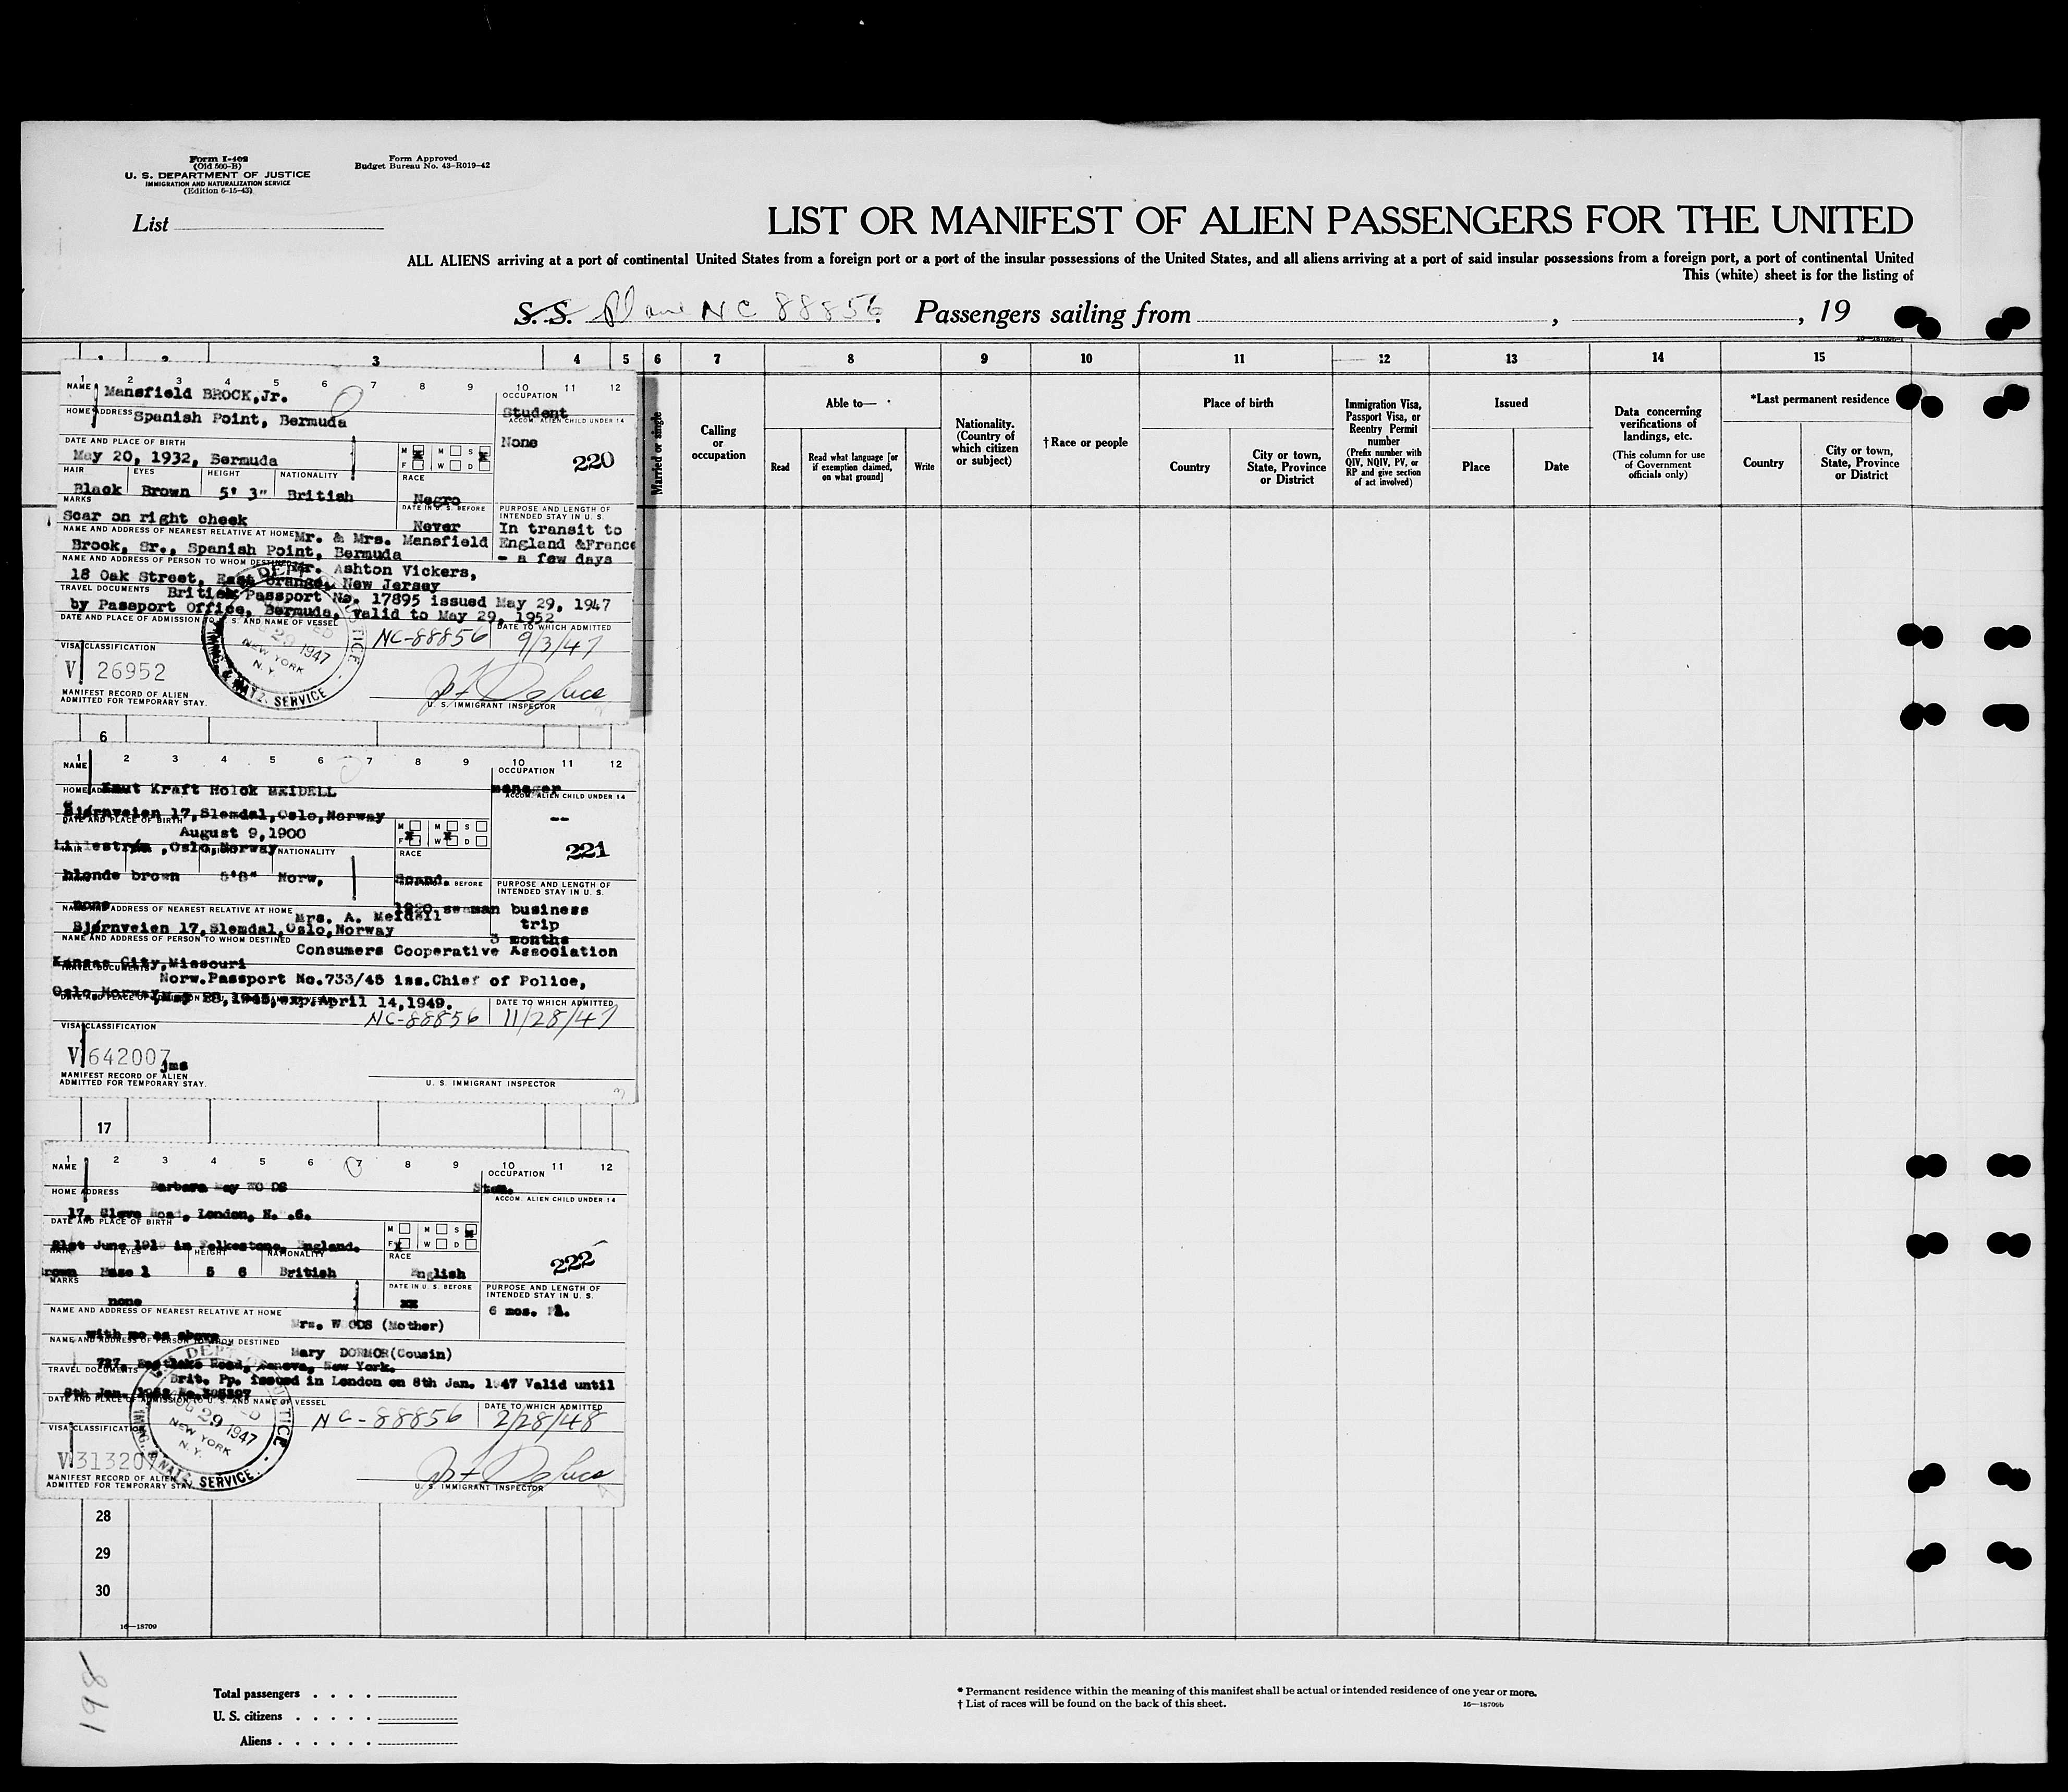 Form I-402
(Old 500-B)
U. S. DEPARTMENT OF JUSTICE
IMMIGRATION AND NATURALIZATION SERVICE
(Edition 6-15-43)
Form Approved
Budget Bureau No. 43-R019-42
List
LIST OR MANIFEST OF ALIEN PASSENGERS FOR THE UNITED
ALL ALIENS arriving at a port of continental United States from a foreign port or a port of the insular possessions of the United States, and all aliens arriving at a port of said insular possessions from a foreign port, a port of continental United
This (white) sheet is for the listing of
S. S. Plane NC 88856 Passengers sailing from , , 19
3 4 5 6 7 8 9 10 11 12 13 14 15
Married or single
Calling
or
occupation
Able to—
Read
Read what language [or
if exemption claimed,
on what ground]
Write
Nationality.
(Country of
which citizen
or subject)
† Race or people
Place of birth
Country
City or town,
State, Province
or District
Immigration Visa,
Passport Visa, or
Reentry Permit
number
(Prefix number with
QIV, NQIV, PV, or
RP and give section
of act involved)
Issued
Place
Date
Data concerning
verifications of
landings, etc.
(This column for use
of Government
officials only)
*Last permanent residence
Country
City or town,
State, Province
or District
1 2 3 4 5 6 7 8 9 10 11 12
NAME Mansfield BROCK,Jr.
OCCUPATION
Student
HOME ADDRESS Spanish Point, Bermuda
ACCOM. ALIEN CHILD UNDER 14
None
DATE AND PLACE OF BIRTH
May 20, 1932, Bermuda
M M S
F W D
220
HAIR EYES HEIGHT NATIONALITY RACE
Black Brown 5' 3" British Negro
MARKS
Scar on right cheek
DATE IN U. S. BEFORE
Never
PURPOSE AND LENGTH OF
INTENDED STAY IN U. S.
In transit to
England &France
- a few days
NAME AND ADDRESS OF NEAREST RELATIVE AT HOME Mr. & Mrs. Mansfield
Brock, Sr., Spanish Point, Bermuda
NAME AND ADDRESS OF PERSON TO WHOM DESTINED Mr. Ashton Vickers,
18 Oak Street, East Orange, New Jersey
TRAVEL DOCUMENTS British Passport No. 17895 issued May 29, 1947
by Passport Office, Bermuda, valid to May 29, 1952
DATE AND PLACE OF ADMISSION TO U. S. AND NAME OF VESSEL
NC-88856
DATE TO WHICH ADMITTED
9/3/47
29 1947
NEW YORK
N. Y.
NATZ. SERVICE
VISA CLASSIFICATION
V 26952
MANIFEST RECORD OF ALIEN
ADMITTED FOR TEMPORARY STAY.
U. S. IMMIGRANT INSPECTOR
6
1 2 3 4 5 6 7 8 9 10 11 12
NAME
OCCUPATION
Knut Kraft Holck MEIDELL
manager
ACCOM. ALIEN CHILD UNDER 14
--
Bjørnveien 17,Slemdal,Oslo,Norway
DATE AND PLACE OF BIRTH
August 9,1900
M M S
F W D
Lillestrøm ,Oslo,Norway
NATIONALITY
RACE
221
blonde brown 5'8" Norw, Scand.
BEFORE
PURPOSE AND LENGTH OF
INTENDED STAY IN U. S.
none
1920 seaman business
trip
3 months
NAME AND ADDRESS OF NEAREST RELATIVE AT HOME Mrs. A. Meidell
Bjørnveien 17,Slemdal,Oslo,Norway
NAME AND ADDRESS OF PERSON TO WHOM DESTINED
Consumers Cooperative Association
Kansas City,Missouri
TRAVEL DOCUMENTS
Norw.Passport No.733/45 iss.Chief of Police,
Oslo,Norway, exp.April 14,1949.
NC-88856
DATE TO WHICH ADMITTED
11/28/47
VISA CLASSIFICATION
V 642007
jms
MANIFEST RECORD OF ALIEN
ADMITTED FOR TEMPORARY STAY.
U. S. IMMIGRANT INSPECTOR
17
1 2 3 4 5 6 7 8 9 10 11 12
NAME
OCCUPATION
HOME ADDRESS Barbara May WOODS
Sten.
ACCOM. ALIEN CHILD UNDER 14
17, Road, London, N. .6.
DATE AND PLACE OF BIRTH
M M S
F W D
21st June 1919 in Folkestone, England.
HAIR EYES HEIGHT NATIONALITY RACE
222
Brown Hazel 5 6 British English
MARKS
none
DATE IN U. S. BEFORE
xx
PURPOSE AND LENGTH OF
INTENDED STAY IN U. S.
6 mos.
NAME AND ADDRESS OF NEAREST RELATIVE AT HOME
Mrs. WOODS (Mother)
with me as above
NAME AND ADDRESS OF PERSON TO WHOM DESTINED
Mary DORMOR(Cousin)
727, Eastlake Road, Geneva, New York.
TRAVEL DOCUMENTS
Brit. Pp. issued in London on 8th Jan. 1947 Valid until
8th Jan.
DATE AND PLACE OF ADMISSION TO U. S. AND NAME OF VESSEL
NC-88856
DATE TO WHICH ADMITTED
2/28/48
29 1947
NEW YORK
N. Y.
NATZ. SERVICE
VISA CLASSIFICATION
V 313207
MANIFEST RECORD OF ALIEN
ADMITTED FOR TEMPORARY STAY.
U. S. IMMIGRANT INSPECTOR
28
29
30
16—18709
198
Total passengers
U. S. citizens
Aliens
* Permanent residence within the meaning of this manifest shall be actual or intended residence of one year or more.
† List of races will be found on the back of this sheet.
16—18709b